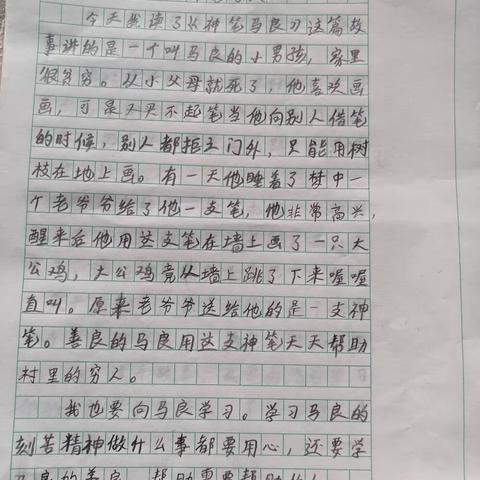 今天我读了《神笔马良》这篇故
事讲的是一个叫马良的小男孩，家里
很贫穷。从小父母就死了，他喜欢画
画，可是又买不起笔当他向别人借笔
的时候，别人都拒之门外，只能用树
枝在地上画。有一天他睡着了梦中一
个老爷爷给了他一支笔，他非常高兴，
醒来后他用这支笔在墙上画了一只大
公鸡，大公鸡竟从墙上跳了下来喔喔
直叫。原来老爷爷送给他的是一支神
笔。善良的马良用这支神笔天天帮助
村里的穷人。
我也要向马良学习。学习马良的
刻苦精神做什么事都要用心，还要学
良的善良，帮助需要帮助的人